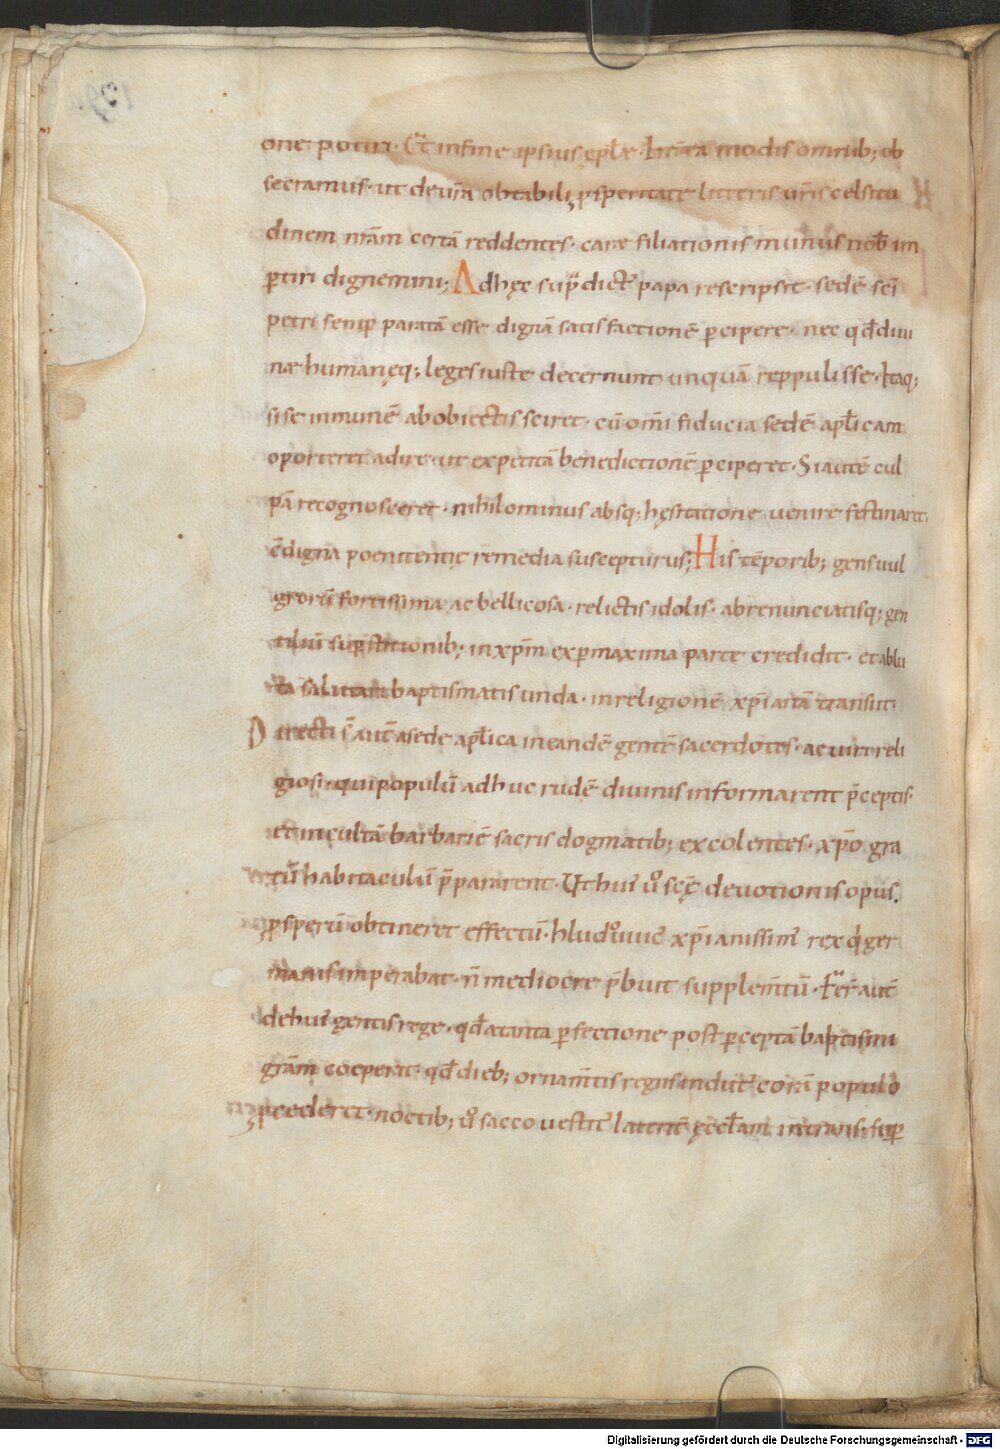 one potiri· Et infine ipsius eplæ· Iterũ modis omnib; ob
secramus· ut deura obtabili psperitate litteris uris celsitu
dinem nrãm certã reddentes· caræ filiationis munus nob im
ptiri dignemini; Adhęc supdict papa rescripsit· sedẽ sci
petri semp paratã esse dignã satisfactionẽ pcipere· nec qd diui
næ humanęq; leges iuste decernunt unquã reppulisse· Itaq;
si se inmunẽ ab obiectis sciret· cũ omi fiducia sedẽ aplicam
oporteret adire· ut expetitã benedictionẽ pciperet· Si autẽ cul
pã recognosceret· nihilominus absq; hęsitatione uenire festinaret·
cdigna poenitentię remedia suscepturus; His tẽporib; gens uul
grorũ fortissima ac bellicosa· relictis idolis· abrenunciatisq; gen
tiliũ supstitionib; in xpm ex pmaxima parte credidit· et ablu
ta salutari baptismatis unda· in religionẽ xpianã transiit·
Directi s aut a sede aplica in eandẽ gentẽ sacerdotes· ac uiri reli
giosi· qui populũ adhuc rudẽ diuinis informarent pceptis·
et incultã barbariẽ sacris dogmatib; excolentes· xpo gra
tũ habitaculũ ppararent· Ut hui u scę deuotionis opus
psperũ obtineret effectũ· hludouuic xpianissim rex q ger
manis imperabat· n mediocre pbuit supplemtũ· Fer aut
de hui gentis rege· qd a tanta pfectione post pceptã baptismi
grãm coeperit· qd dieb; ornamtis regiis indut corã populo
pcederet· noctib; u sacco uestit latent ęcclam intrans· sup
139
Digitalisierung gefördert durch die Deutsche Forschungsgemeinschaft - DFG